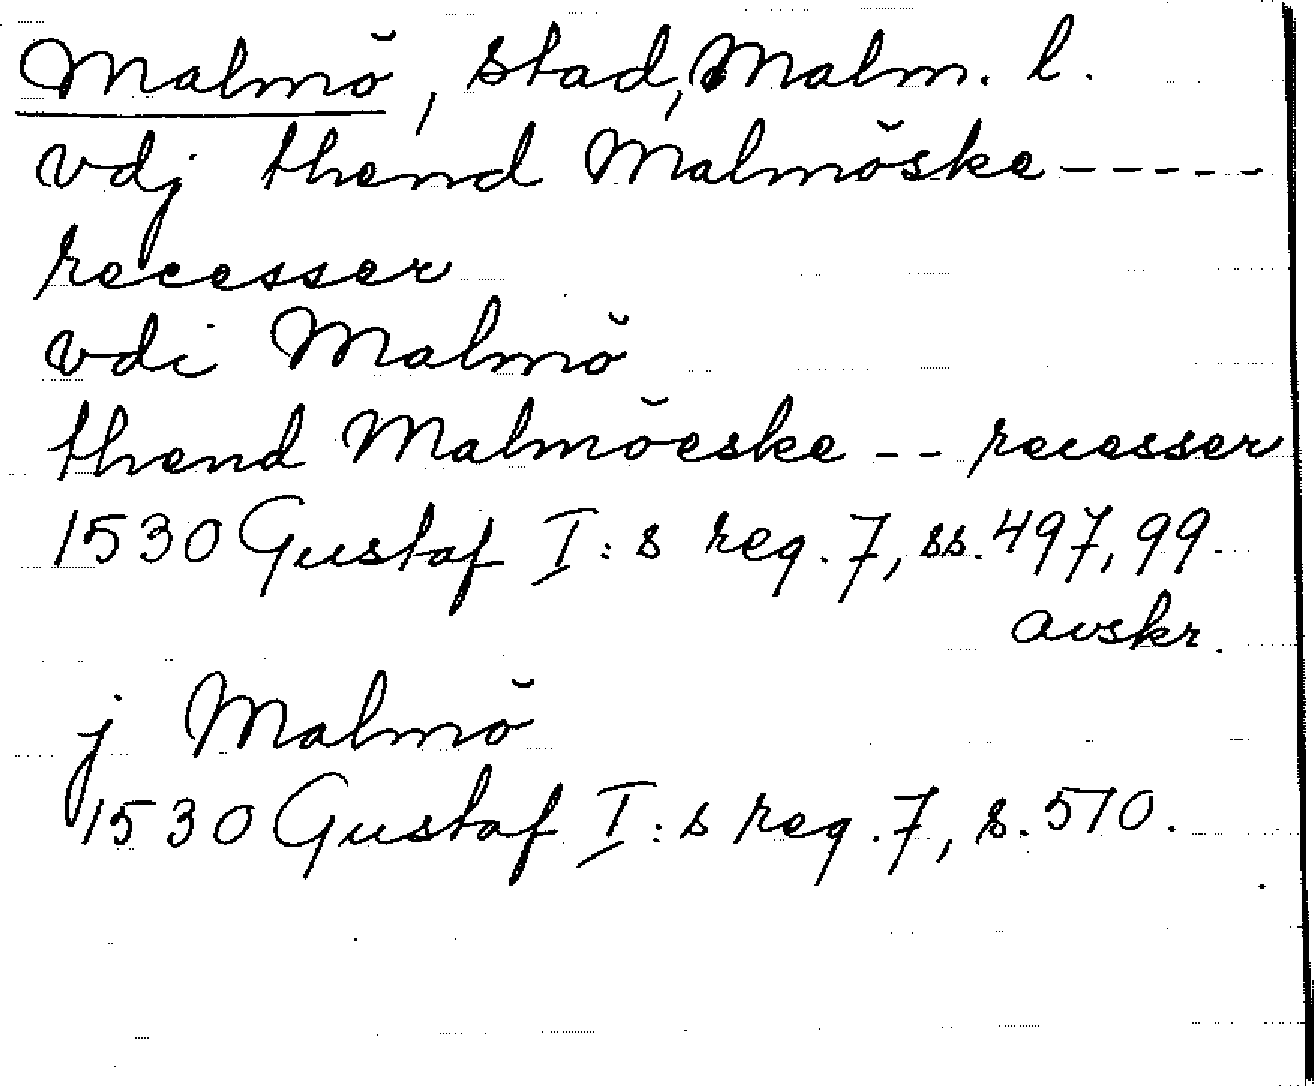 Malmö, stad, Malm. l.
vdj thend Malmöske-----
recesser
vdi Malmö
thend Malmöeske -- recesser
1530 Gustaf I:s reg. 7, ss. 497, 99.
avskr.
j Malmö
1530 Gustaf I:s reg. 7, s. 510.